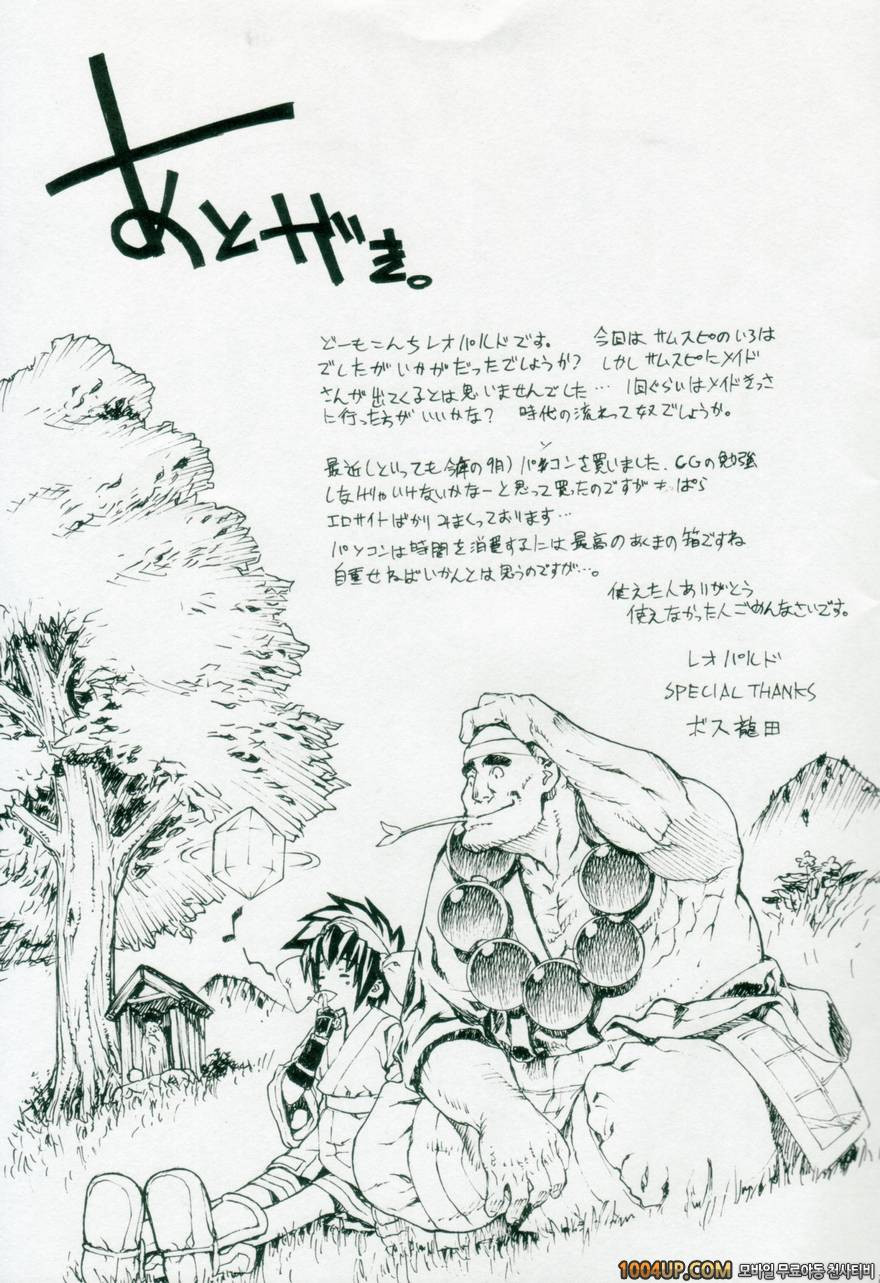 あとがき。
どーもこんちレオパルドです。 今回は サムスピのいろは
でしたがいかがだったでしょうか? しかしサムスピにメイド
さんが出てくるとは思いませんでした… 1回ぐらいはメイドきっさ
に行った方がいいかな? 時代の流れって奴でしょうか。
最近(といっても今年の9月)パソコンを買いました、CGの勉強
ン
しなけりゃいけないかなーと思って買ったのですが もっぱら
エロサイトばかりみまくっております…
パソコンは時間を消費するには最高のあくまの箱ですね
自重せねばいかんとは思うのですが…。
使えた人ありがとう
使えなかった人ごめんなさいです。
レオパルド
SPECIAL THANKS
ボス龍田
1004UP.COM 모바일 무료야동 천사티비